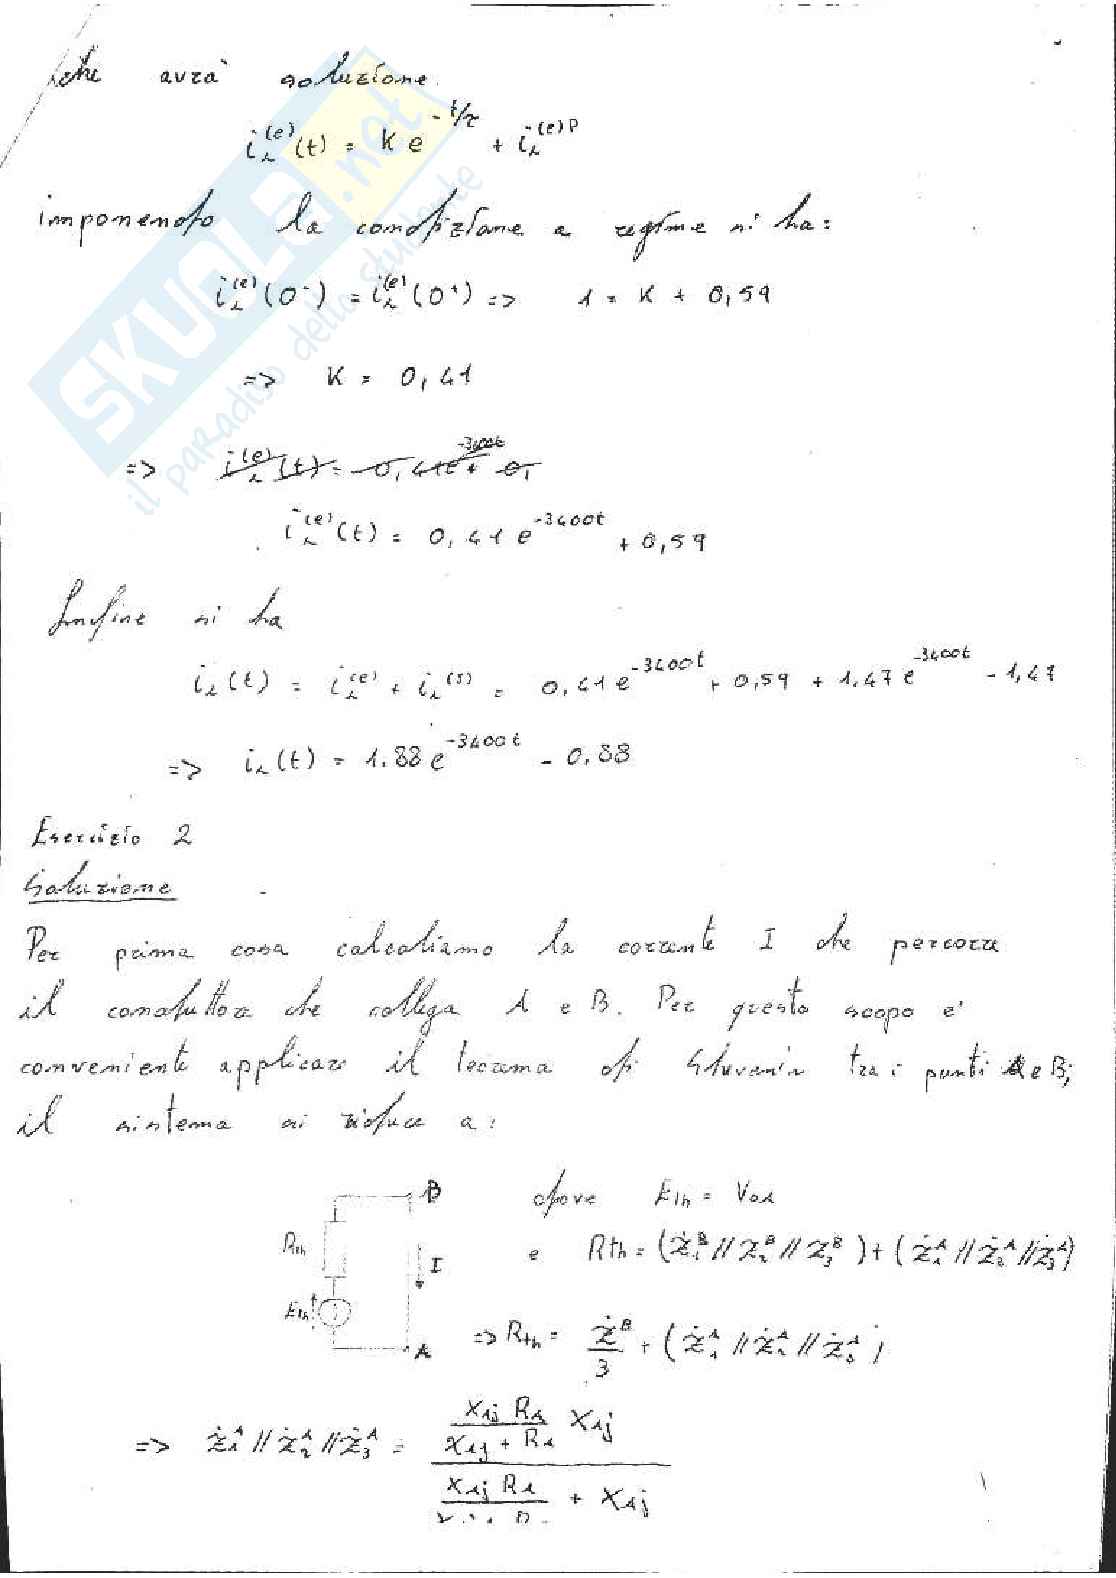 che avrà soluzione.
i_L^(e)(t) = K e^(-t/τ) + i_L^(e)P
imponendo la condizione a regime si ha:
i_L^(e)(0⁻) = i_L^(e)(0⁺) => 1 = K + 0,59
=> K = 0,41
=> i_L^(e)(t) = 0,41e^(-3400t) + 0,
i_L^(e)(t) = 0,41 e^(-3400t) + 0,59
Infine si ha
i_L(t) = i_L^(e) + i_L^(s) = 0,41e^(-3400t) + 0,59 + 1,47e^(-3400t) - 1,47
=> i_L(t) = 1.88 e^(-3400t) - 0.88
Esercizio 2
Soluzione
Per prima cosa calcoliamo la corrente I che percorre
il conduttore che collega A e B. Per questo scopo e'
conveniente applicare il teorema di Thevenin tra i punti A e B;
il sistema si riduce a:
B
dove Eth = V_BA
Rth
I
e Rth = (Ż₁^B // Ż₂^B // Ż₃^B) + (Ż₁^A // Ż₂^A // Ż₃^A)
Eth
A
=> Rth = Ż^B/3 + (Ż₁^A // Ż₂^A // Ż₃^A)
=> Ż₁^A // Ż₂^A // Ż₃^A =
X₁j R₁ / X₁j + R₁ X₁j
X₁j R₁ + X₁j
SKUOLA.net
il paradiso dello studente